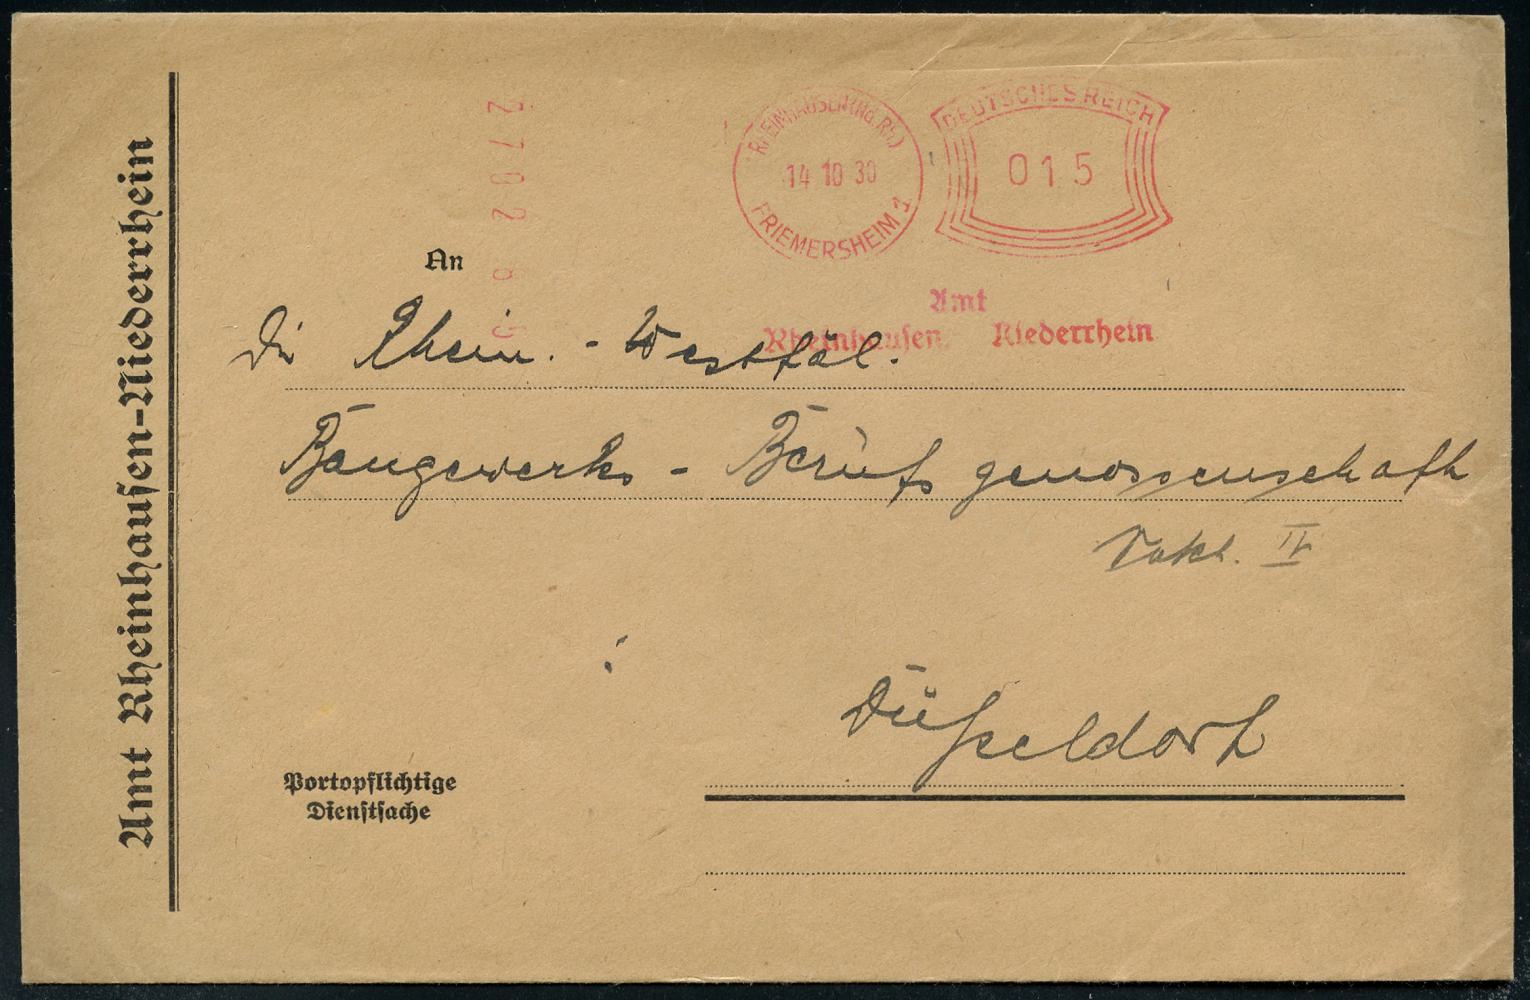 Amt Rheinhausen-Niederrhein
RHEINHAUSEN (Nd. Rh.)
14 10 30
FRIEMERSHEIM 1
DEUTSCHES REICH
015
Amt
Rheinhausen Niederrhein
An
Die Rhein.-Westfäl.
Baugewerks-Berufsgenossenschaft
IV
Düsseldorf
Portopflichtige
Dienstsache